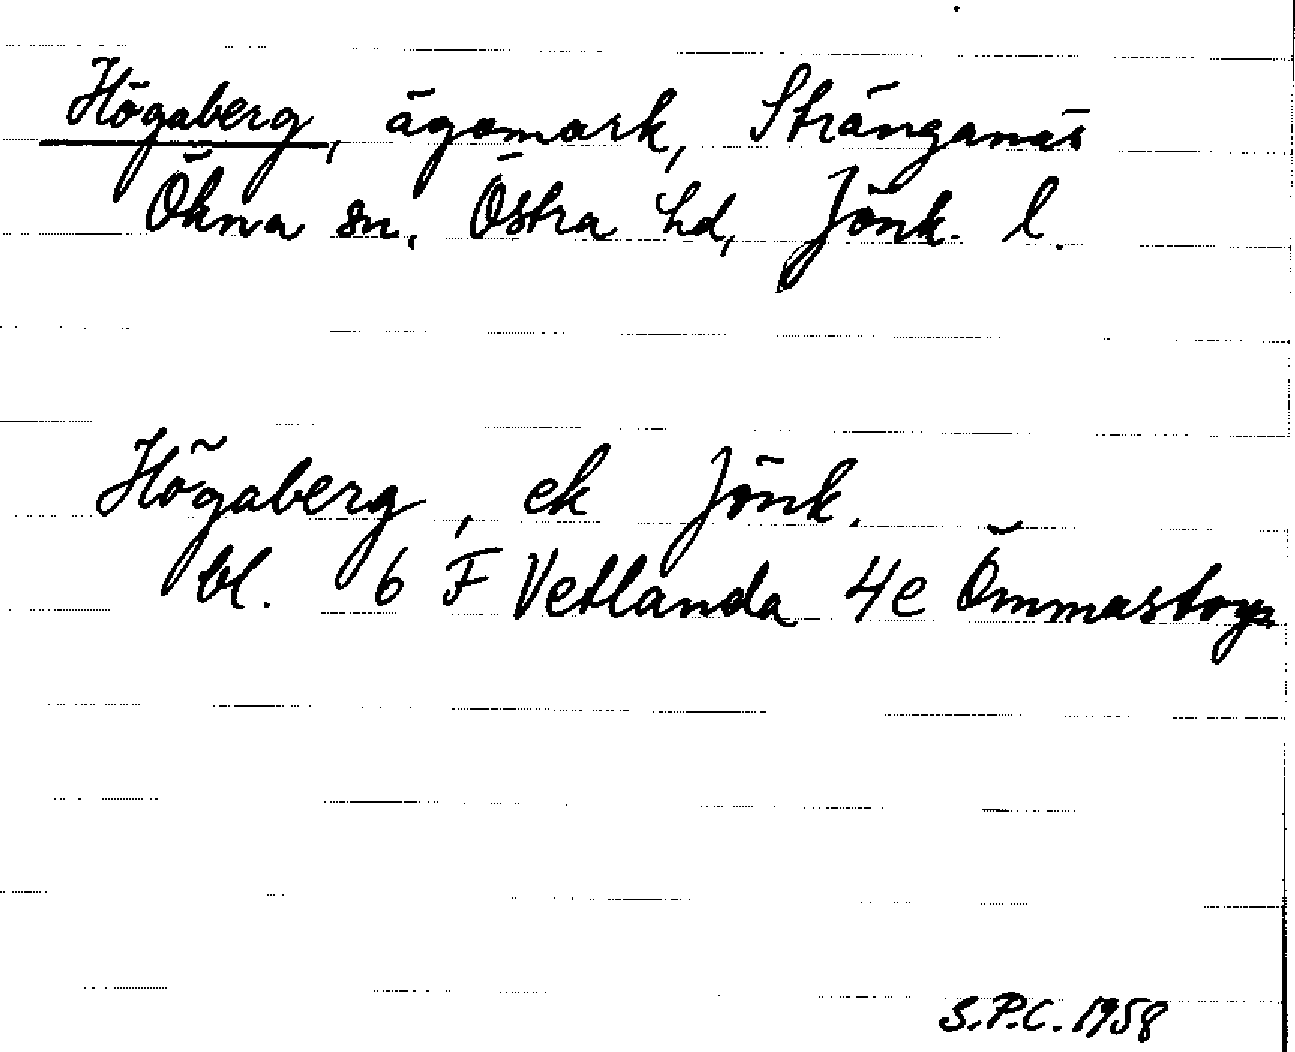 Högaberg, ägomark, Stränganäs
Ökna sn, Östra hd, Jönk. l.
Högaberg, ek Jönk.
bl. 6 F Vetlanda 4e Ömmastorp
S.P.C. 1958